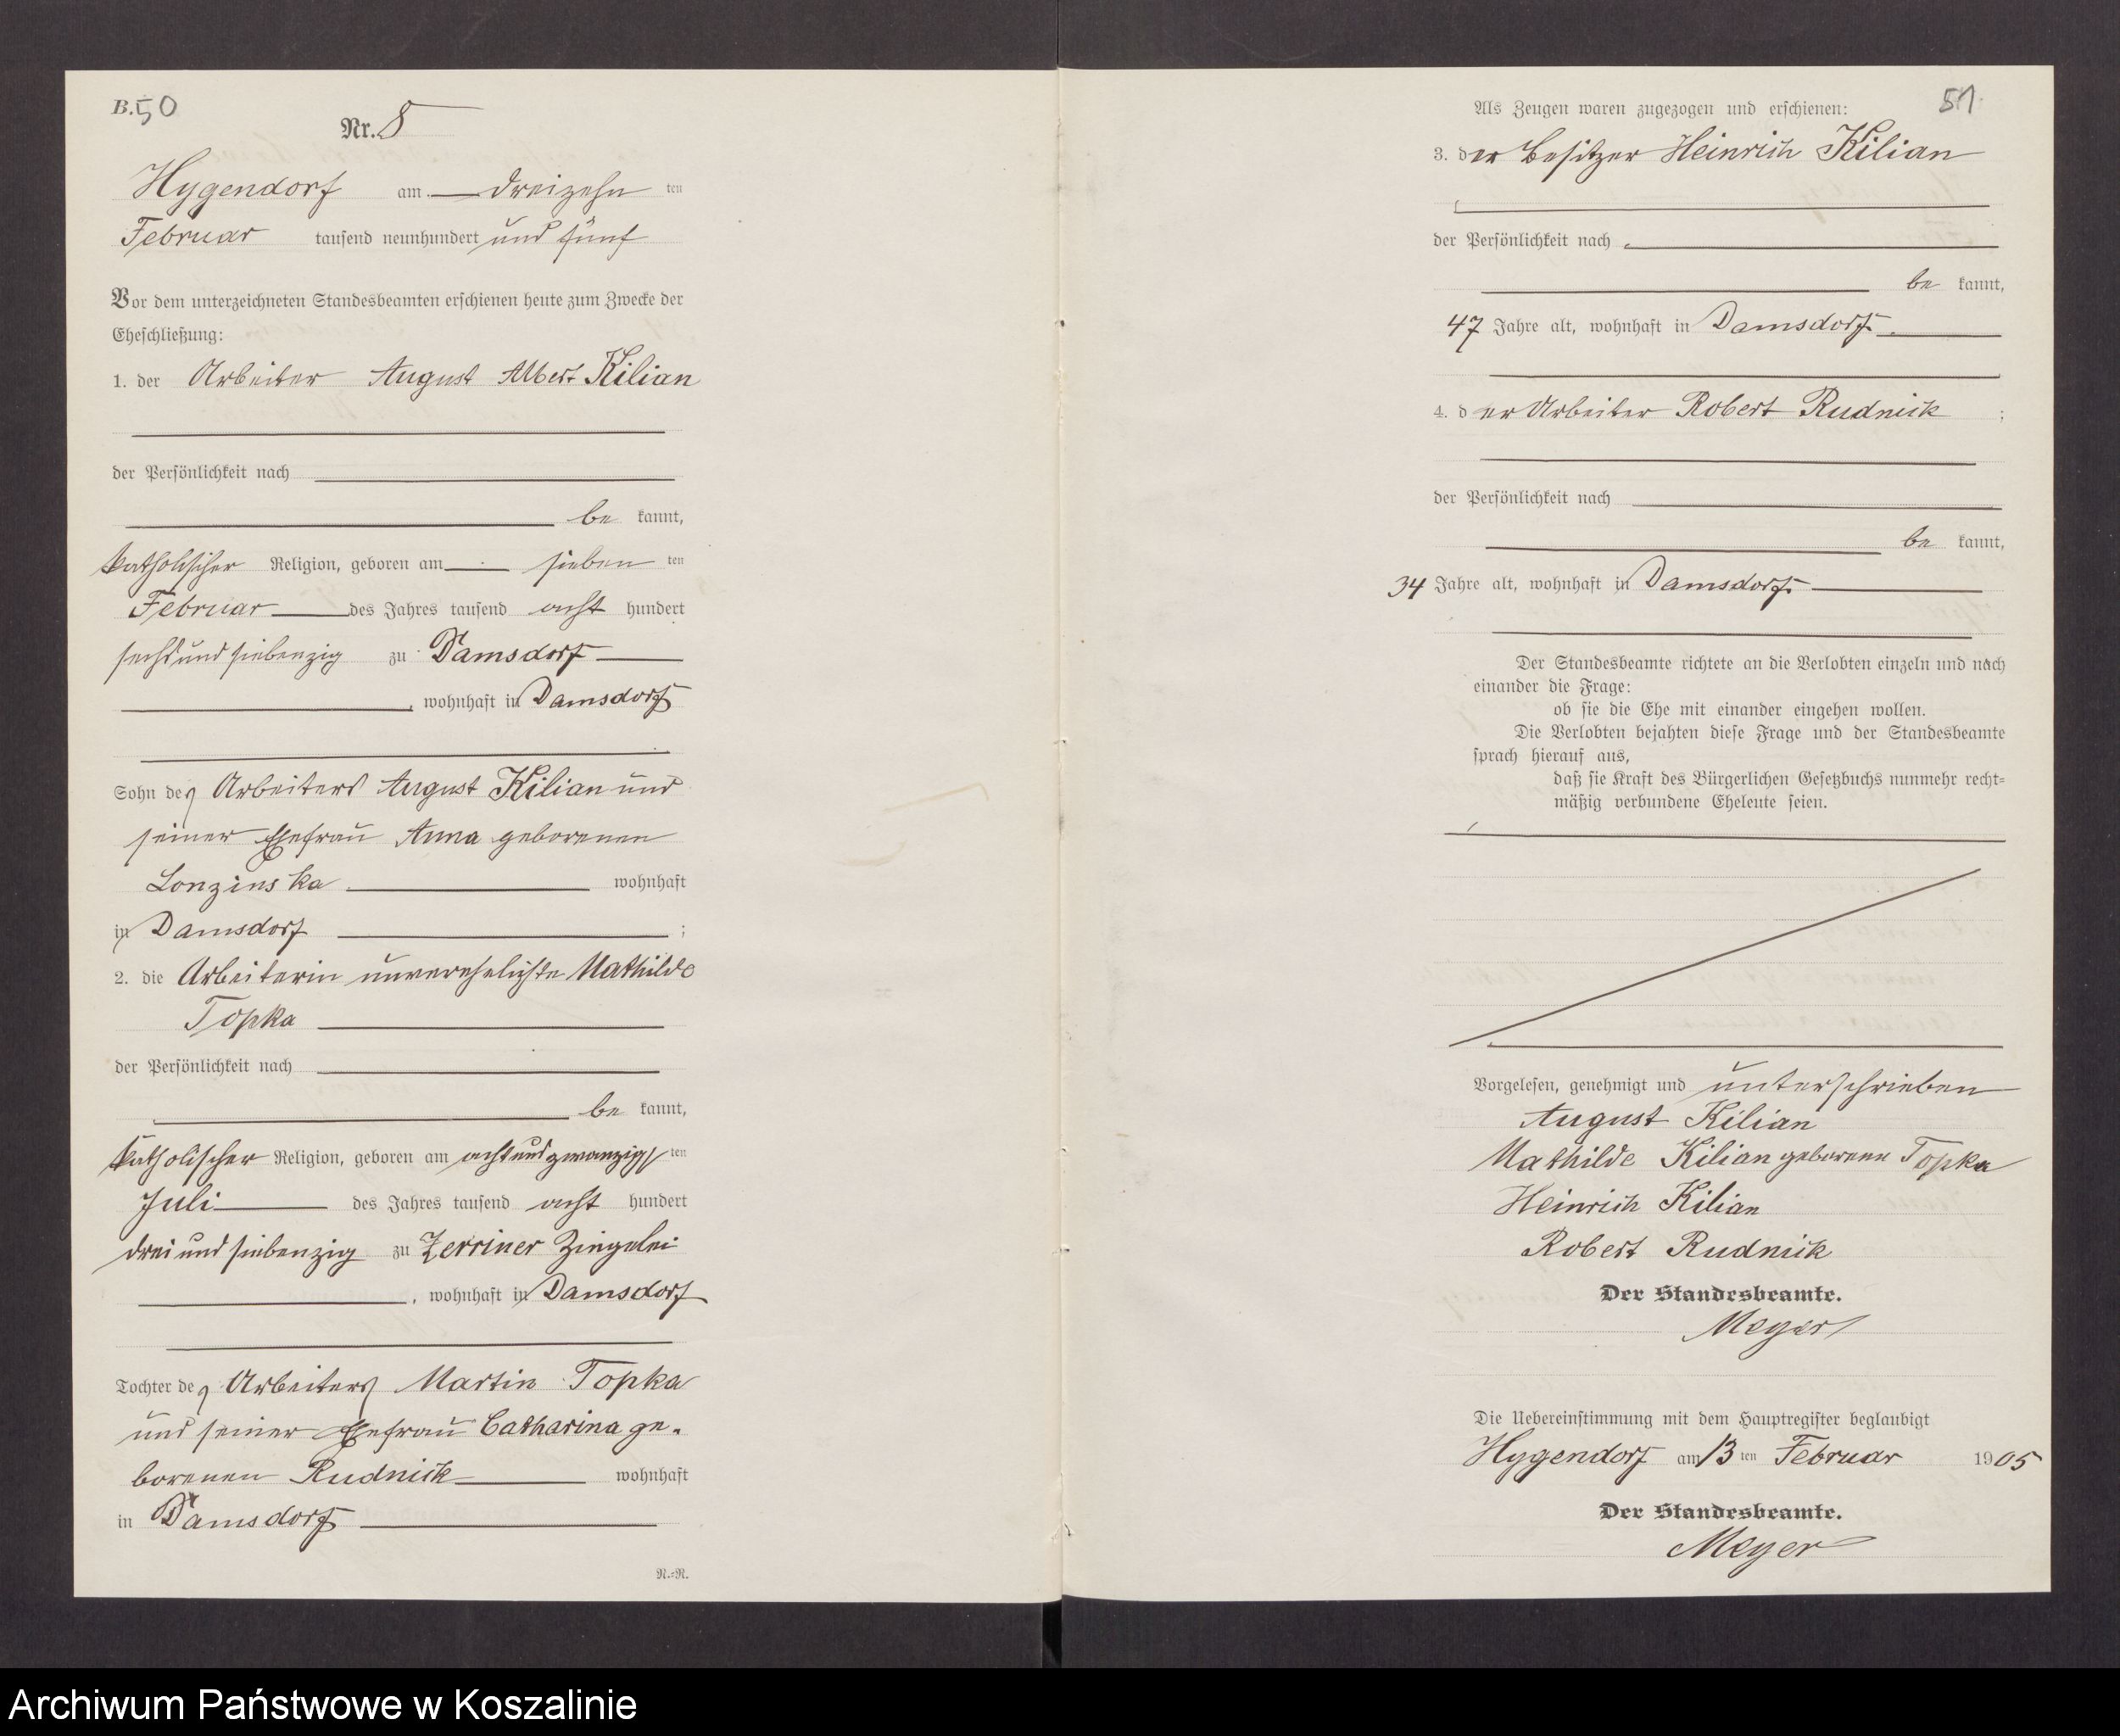 B. 50
Nr. 8
Hygendorf am dreizehn ten
Februar tausend neunhundert und fünf
Vor dem unterzeichneten Standesbeamten erschienen heute zum Zwecke der
Eheschließung:
1. der Arbeiter August Albert Kilian
der Persönlichkeit nach
be kannt,
katholischer Religion, geboren am sieben ten
Februar des Jahres tausend acht hundert
sechsundsiebenzig zu Damsdorf
, wohnhaft in Damsdorf
Sohn des Arbeiters August Kilian und
seiner Ehefrau Anna geborenen
Lonzinska wohnhaft
in Damsdorf ;
2. die Arbeiterin unverehelichte Mathilde
Topka
der Persönlichkeit nach
be kannt,
katholischer Religion, geboren am achtundzwanzigs ten
Juli des Jahres tausend acht hundert
dreiundsiebenzig zu Zerriner Ziegelei
, wohnhaft in Damsdorf
Tochter des Arbeiters Martin Topka
und seiner Ehefrau Catharina ge-
borenen Rudnick wohnhaft
in Damsdorf
N.=N.
51
Als Zeugen waren zugezogen und erschienen:
3. der Besitzer Heinrich Kilian
der Persönlichkeit nach
be kannt,
47 Jahre alt, wohnhaft in Damsdorf
4. der Arbeiter Robert Rudnick ;
der Persönlichkeit nach
be kannt,
34 Jahre alt, wohnhaft in Damsdorf
Der Standesbeamte richtete an die Verlobten einzeln und nach
einander die Frage:
ob sie die Ehe mit einander eingehen wollen.
Die Verlobten bejahten diese Frage und der Standesbeamte
sprach hierauf aus,
daß sie Kraft des Bürgerlichen Gesetzbuchs nunmehr recht=
mäßig verbundene Eheleute seien.
Vorgelesen, genehmigt und unterschrieben
August Kilian
Mathilde Kilian geborene Topka
Heinrich Kilian
Robert Rudnick
Der Standesbeamte.
Meyer
Die Uebereinstimmung mit dem Hauptregister beglaubigt
Hygendorf am 13 ten Februar 1905
Der Standesbeamte.
Meyer
Archiwum Państwowe w Koszalinie